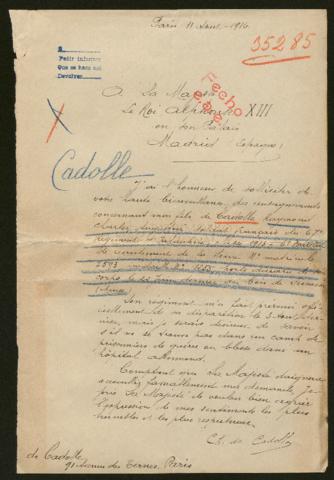 Paris 11 1914
35285
Pedir informes
Que se hace así
Devolver
Fecho
A Sa Majesté
Le Roi Alphonse XIII
en son Palais
Madrid (Espagne)
Cadolle
J'ai l'honneur de solliciter de
votre haute bienveillance, des renseignements
concernant mon fils de Cadolle Raymond
Charles soldat français du 67e
régiment d'Infanterie classe 1914 - 6e
de recrutement de la Seine No matricule
porté disparu
corps le
Son régiment m'a fait prévenir offici-
ellement de sa disparition le 3
mais je serais désireux de savoir
s'il ne se trouve pas dans un camp de
prisonniers de guerre ou blessé dans un
hôpital allemand.
Comptant que Sa Majesté daignera
accueillir favorablement ma demande, je
prie Sa Majesté de vouloir bien
l'expression de mes sentiments les plus
humbles et les plus respectueux.
Ch. de Cadolle
de Cadolle
91 avenue des Ternes, Paris